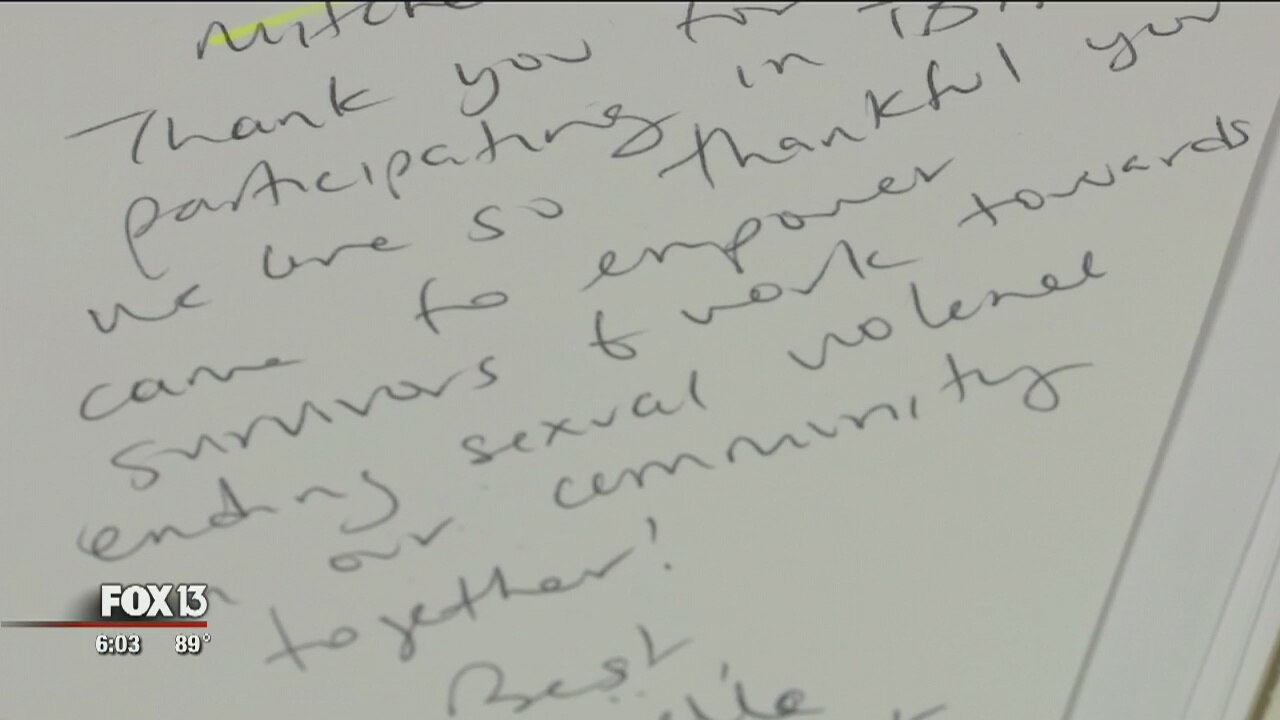 Thank you for
participating in
we are so thankful you
came to empower
survivors & work towards
ending sexual violence
in our community
together!
Best
FOX 13
6:03 89°